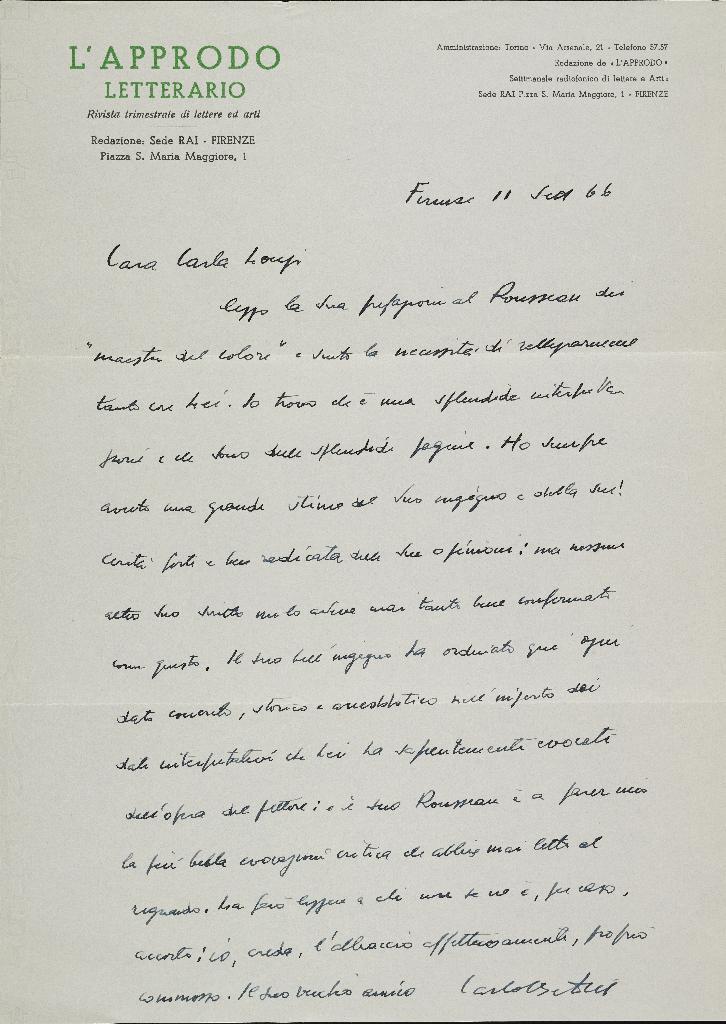 L'APPRODO
LETTERARIO
Rivista trimestrale di lettere ed arti
Redazione: Sede RAI - FIRENZE
Piazza S. Maria Maggiore, 1
Amministrazione: Torino - Via Arsenale, 21 - Telefono 57.57
Redazione de « L'APPRODO »
Settimanale radiofonico di lettere e Arti:
Sede RAI P.zza S. Maria Maggiore, 1 - FIRENZE
Firenze 11 Sett 66
Cara Carla Lonzi
leggo la Sua prefazione al Rousseau dei
"maestri del colore" e sento la necessità di rallegrarmene
tanto con Lei. Io trovo che è una splendida interpreta
zione e che sono delle splendide pagine. Ho sempre
avuto una grande stima del Suo ingegno e della sin
cerità forte e ben radicata delle Sue opinioni: ma nessun
altro Suo scritto me lo aveva mai tanto bene confermato
come questo. Il Suo bell'ingegno ha ordinato qui ogni
dato concreto, storico e aneddotico nell'
dati interpretativi che Lei ha sapientemente evocati
dall'opera del pittore: e il Suo Rousseau è a parer mio
la più bella evocazione critica che abbia mai letto al
riguardo. La farò leggere a chi non se ne è, per caso,
accorto; io, creda, l'abbraccio affettuosamente, proprio
commosso. Il Suo vecchio amico Carlo Betocchi